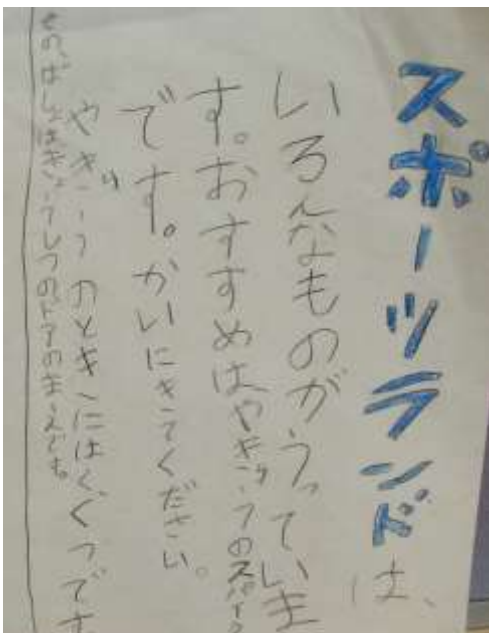 スポーツランドは、
いろんなものがうっていま
す。おすすめはやきゅうのスパイク
です。かいにきてください。
やきゅうのときにはくくつです
そのばしょはきょうしつのドアのまえです